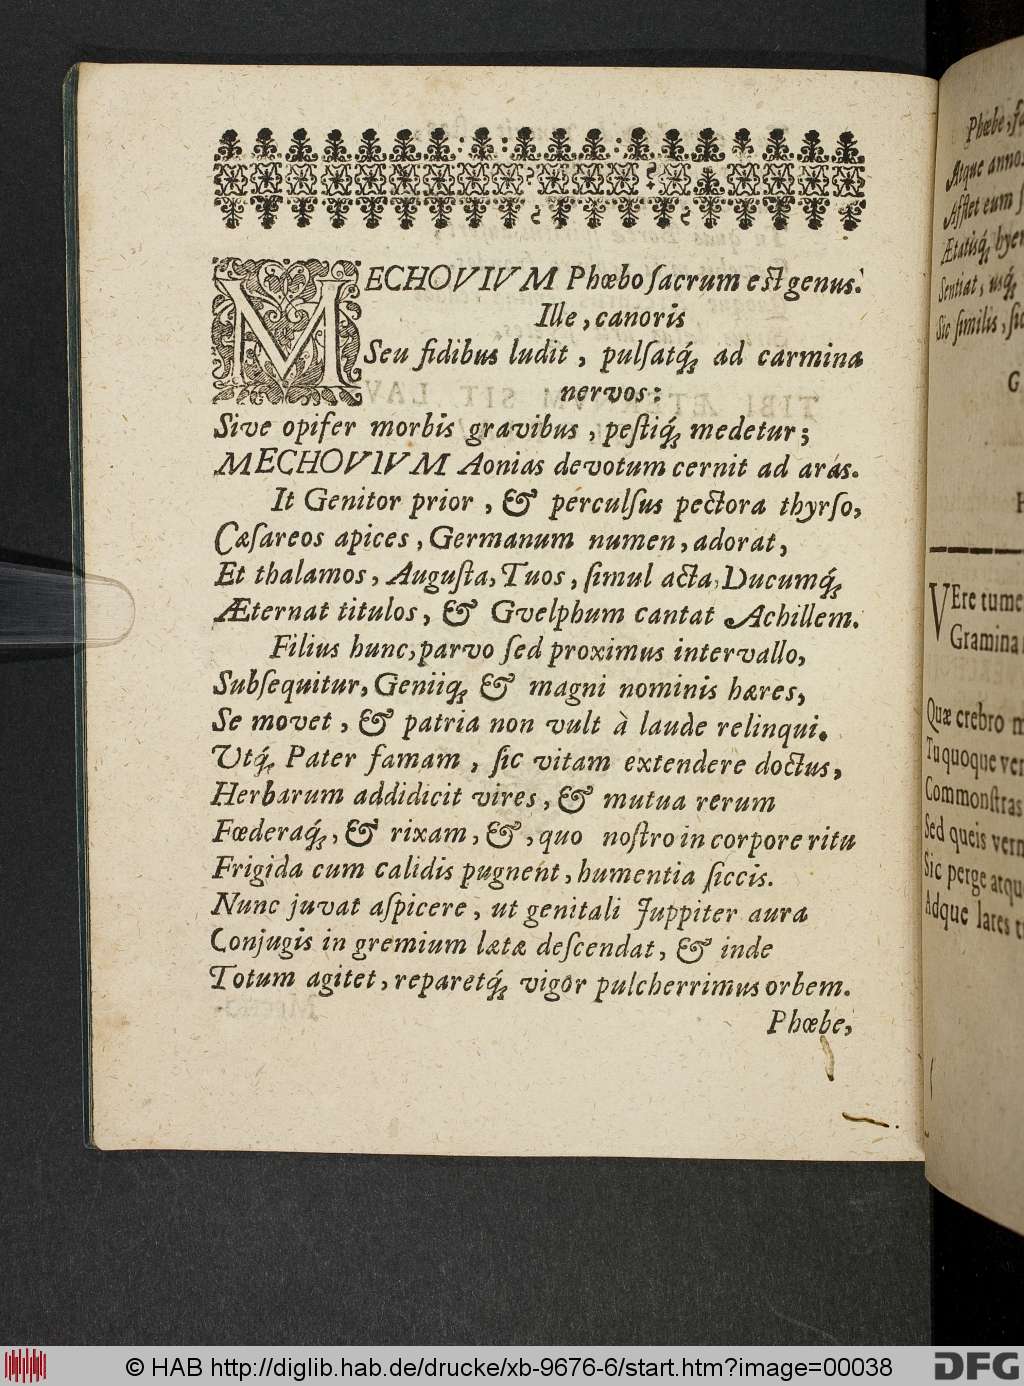 MECHOVIVM Phœbo ſacrum eſt genus.
Ille, canoris
Seu fidibus ludit, pulſatq́; ad carmina
nervos:
Sive opifer morbis gravibus, peſtiq́; medetur;
MECHOVIVM Aonias devotum cernit ad aras.
It Genitor prior, & perculſus pectora thyrſo,
Cæſareos apices, Germanum numen, adorat,
Et thalamos, Auguſta, Tuos, ſimul acta, Ducumq́;
Æternat titulos, & Gvelphum cantat Achillem.
Filius hunc, parvo ſed proximus intervallo,
Subſequitur, Geniiq́; & magni nominis hæres,
Se movet, & patria non vult à laude relinqui.
Utq́; Pater famam, ſic vitam extendere doctus,
Herbarum addidicit vires, & mutua rerum
Fœderaq́;, & rixam, &, quo noſtro in corpore ritu
Frigida cum calidis pugnent, humentia ſiccis.
Nunc juvat aſpicere, ut genitali Juppiter aura
Conjugis in gremium lætæ deſcendat, & inde
Totum agitet, reparetq́; vigor pulcherrimus orbem.
Phœbe,
Phœbe,
Atque
Aſſtet eum
Ætatiſq́;
Sentiat, uſq́;
Sic ſimilis,
G
VEre tume
Gramina
Quæ crebro
Tu quoque
Commonſtras
Sed queis
Sic perge
Adque lares
© HAB http://diglib.hab.de/drucke/xb-9676-6/start.htm?image=00038
DFG